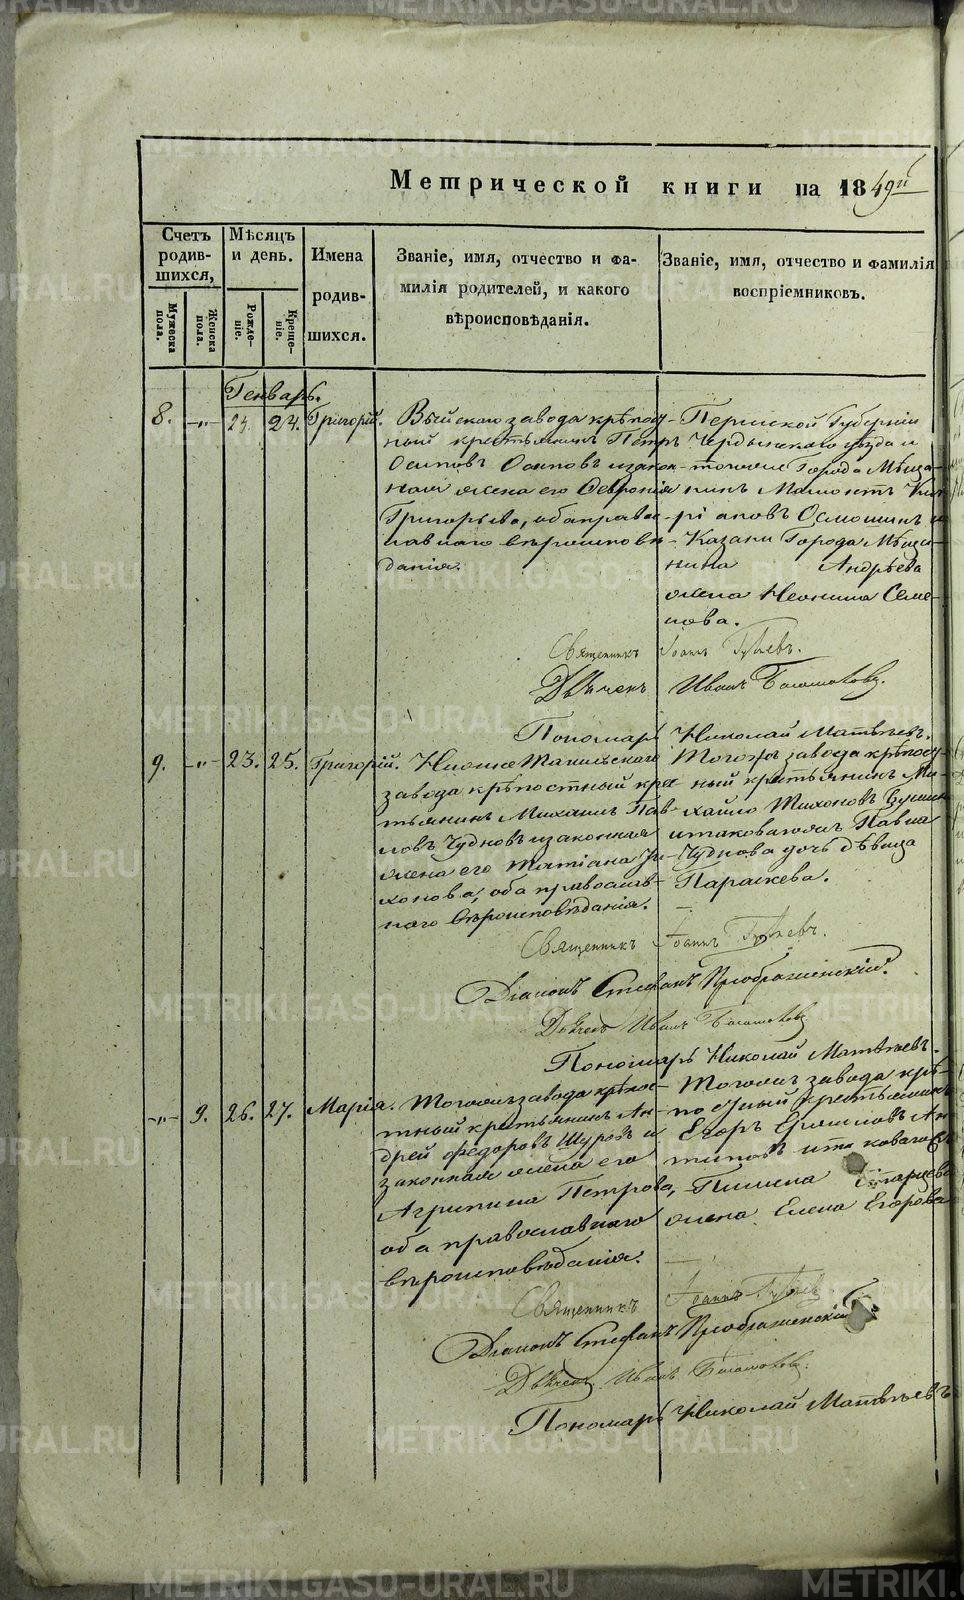 Метрической книги на 1849й
Счетъ родив-шихся,
Мѣсяцъ и день.
Имена родив-шихся.
Званіе, имя, отчество и фа-
милія родителей, и какого
вѣроисповѣданія.
Званіе, имя, отчество и фамилія
воспріемниковъ.
Мужеска пола.
Женска пола.
Рожде-ніе.
Креще-ніе.
Генварь.
8. -„- 24. 24. Григорій.
Выйскаго завода крѣпос-
ный крестьянинъ Петръ
Осиповъ Осиповъ изакон-
ная жена его Феврония
Григорьева, оба правос-
лавнаго вѣроисповѣ-
данія.
Пермской Губерніи
Чердынскаго уѣзда и
тогоже Города Мѣща-
нинъ
Казани Города Мѣща-
нина Андрѣева
жена Неонила Семе-
нова.
Священникъ Іоаннъ
Дьячекъ Иванъ
Пономарь Николай Матвѣевъ.
9. -„- 23. 25. Григорій.
Нижне Тагильскаго
завода крѣпостный кре
тьянинъ Михаилъ Пав-
ловъ Чудновъ изаконная
жена его Татіана Ти-
хонова, оба православ-
наго вѣроисповѣданія.
Тогожъ завода крѣпос-
ный крестьянинъ Ми-
хайло Тихоновъ
итаковагожъ Павла
Чуднова дочь дѣвица
Параскева.
Священникъ Іоаннъ
Діаконъ Стефанъ Преображенскій.
Дьячекъ Иванъ
Пономарь Николай Матвѣевъ.
-„- 9. 26. 27. Марія.
Тогожъ завода крѣпос-
тный крестьянинъ Ан-
дрей Федоровъ Щуровъ и
законная жена его
Агрипина Петрова,
оба православнаго
вѣроисповѣданія.
Тогожъ завода крѣ-
постный крестьянинъ
Егоръ
итаковагожъ
Пимена
жена Елена Егорова
Священникъ Іоаннъ
Діаконъ Стефанъ Преображенскій
Дьячекъ Иванъ
Пономарь Николай Матвѣевъ
METRIKI.GASO-URAL.RU